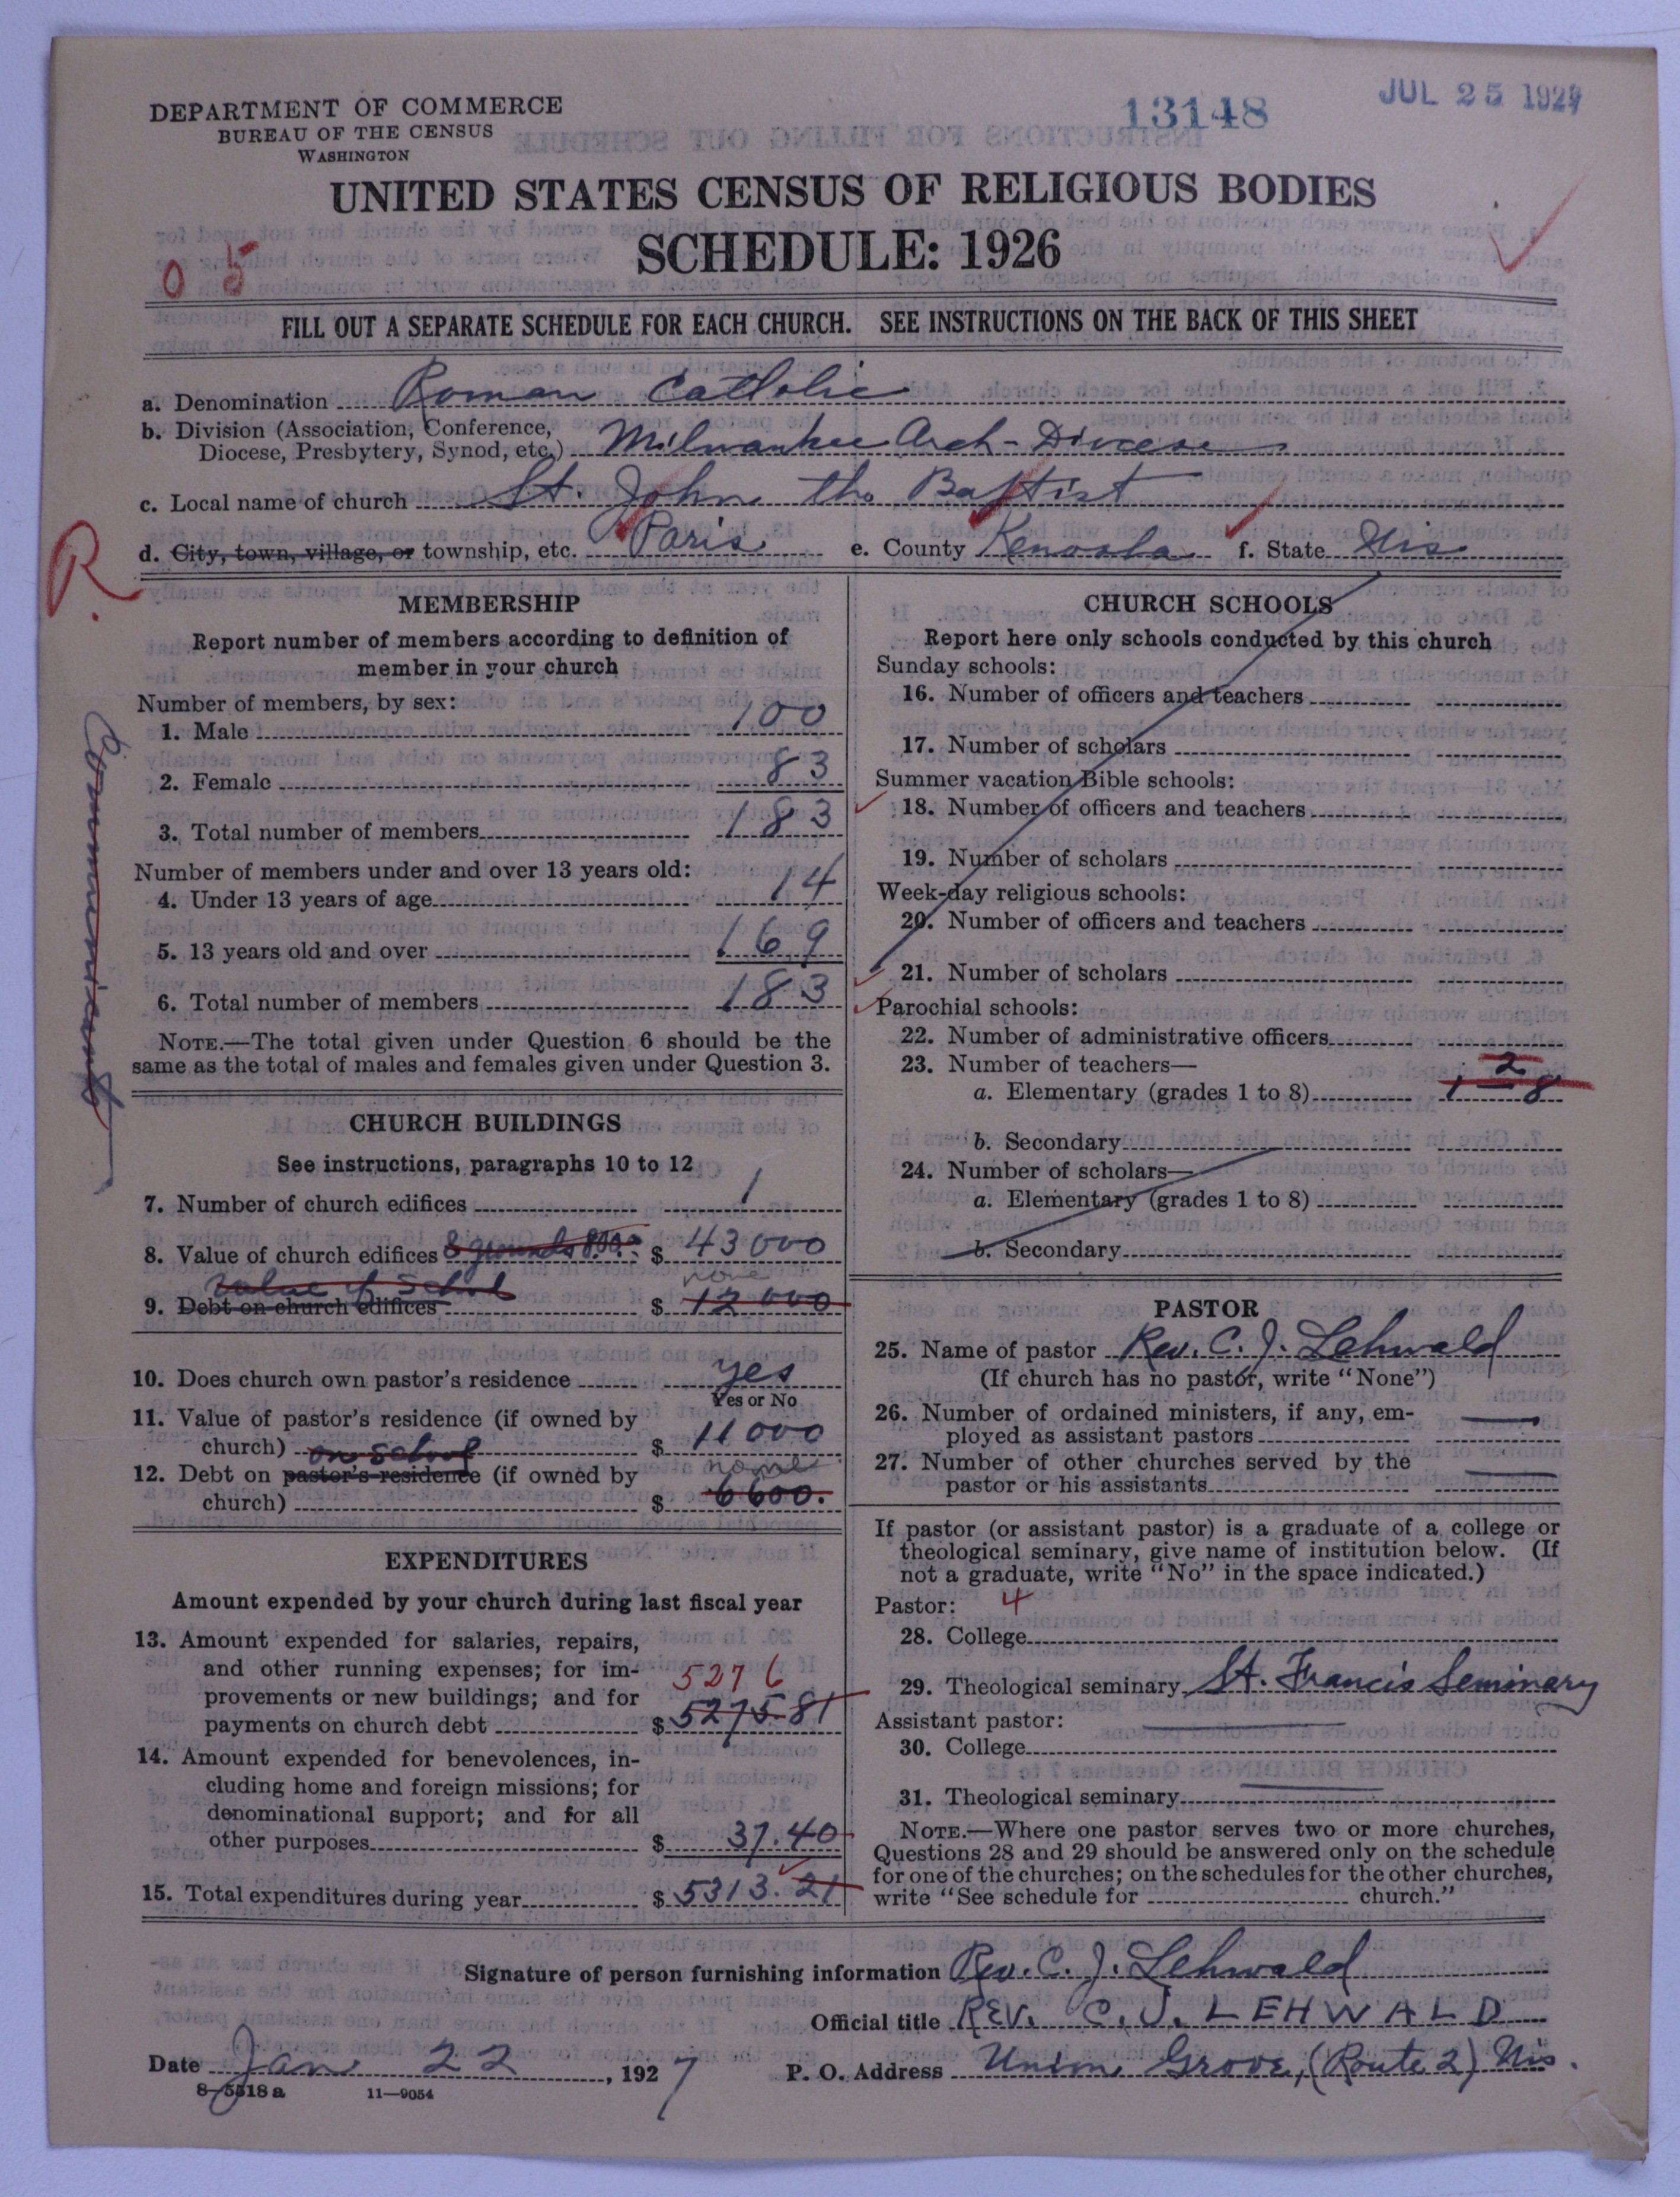 DEPARTMENT OF COMMERCE
BUREAU OF THE CENSUS
WASHINGTON
13148
JUL 25 1927
UNITED STATES CENSUS OF RELIGIOUS BODIES
SCHEDULE: 1926
0 5
FILL OUT A SEPARATE SCHEDULE FOR EACH CHURCH. SEE INSTRUCTIONS ON THE BACK OF THIS SHEET
a. Denomination Roman Catholic
b. Division (Association, Conference,
Diocese, Presbytery, Synod, etc.) Milwaukee Arch-Diocese
c. Local name of church St. John the Baptist
d. City, town, village, or township, etc. Paris e. County Kenosha f. State Wis
R.
Communicants
MEMBERSHIP
Report number of members according to definition of
member in your church
Number of members, by sex:
1. Male 100
2. Female 83
3. Total number of members 183
Number of members under and over 13 years old:
4. Under 13 years of age 14
5. 13 years old and over 169
6. Total number of members 183
NOTE.—The total given under Question 6 should be the
same as the total of males and females given under Question 3.
CHURCH BUILDINGS
See instructions, paragraphs 10 to 12
7. Number of church edifices 1
8. Value of church edifices & grounds 800.00 $ 43000
Value of School none
9. Debt on church edifices $ 12000
10. Does church own pastor's residence yes
Yes or No
11. Value of pastor's residence (if owned by
church) $ 11000
on school none
12. Debt on pastor's residence (if owned by
church) $ 6600.
EXPENDITURES
Amount expended by your church during last fiscal year
13. Amount expended for salaries, repairs,
and other running expenses; for im- 5276
provements or new buildings; and for
payments on church debt $ 5275.81
14. Amount expended for benevolences, in-
cluding home and foreign missions; for
denominational support; and for all
other purposes $ 37.40
15. Total expenditures during year $ 5313.21
CHURCH SCHOOLS
Report here only schools conducted by this church
Sunday schools:
16. Number of officers and teachers
17. Number of scholars
Summer vacation Bible schools:
18. Number of officers and teachers
19. Number of scholars
Week-day religious schools:
20. Number of officers and teachers
21. Number of scholars
Parochial schools:
22. Number of administrative officers
23. Number of teachers— 2
a. Elementary (grades 1 to 8) 1 — 8
b. Secondary
24. Number of scholars—
a. Elementary (grades 1 to 8)
b. Secondary
PASTOR
25. Name of pastor Rev. C. J. Lehwald
(If church has no pastor, write "None")
26. Number of ordained ministers, if any, em-
ployed as assistant pastors —
27. Number of other churches served by the
pastor or his assistants —
If pastor (or assistant pastor) is a graduate of a college or
theological seminary, give name of institution below. (If
not a graduate, write "No" in the space indicated.)
Pastor: 4
28. College
29. Theological seminary St. Francis Seminary
Assistant pastor: —
30. College
31. Theological seminary —
NOTE.—Where one pastor serves two or more churches,
Questions 28 and 29 should be answered only on the schedule
for one of the churches; on the schedules for the other churches,
write "See schedule for church."
Signature of person furnishing information Rev. C. J. Lehwald
Official title REV. C. J. LEHWALD
Date Jan 22, 1927 P. O. Address Union Grove, (Route 2) Wis.
8-5518a 11—9054